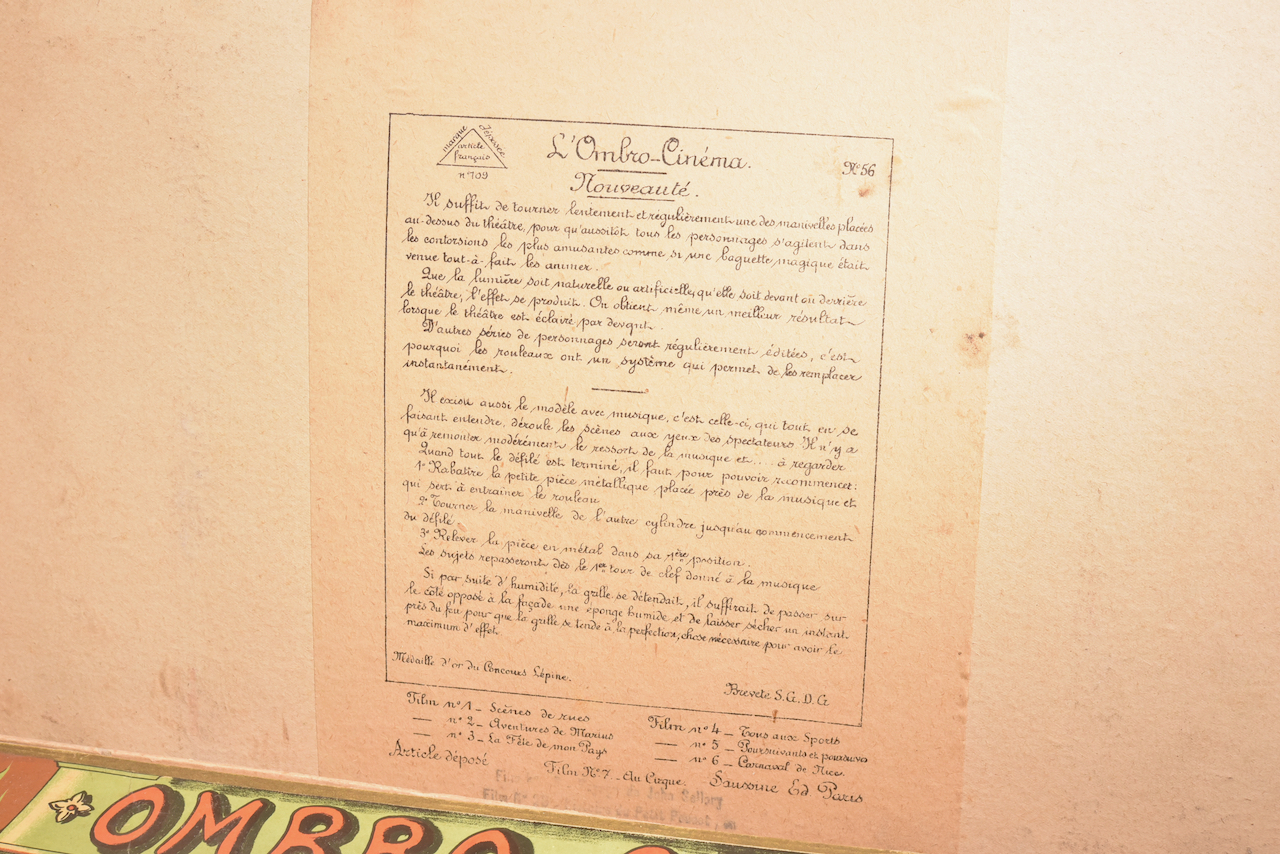 marque déposée
article
français
n° 109
L'Ombro-Cinéma.
N° 56
Nouveauté.
Il suffit de tourner lentement et régulièrement une des manivelles placées
au-dessus du théâtre, pour qu'aussitôt tous les personnages s'agitent dans
les contorsions les plus amusantes comme si une baguette magique était
venue tout-à-fait les animer.
Que la lumière soit naturelle ou artificielle, qu'elle soit devant ou derrière
le théâtre, l'effet se produit. On obtient même un meilleur résultat
lorsque le théâtre est éclairé par devant.
D'autres séries de personnages seront régulièrement éditées, c'est
pourquoi les rouleaux ont un système qui permet de les remplacer
instantanément.
Il existe aussi le modèle avec musique, c'est celle-ci, qui tout en se
faisant entendre, déroule les scènes aux yeux des spectateurs. Il n'y a
qu'à remonter modérément le ressort de la musique et.... à regarder
Quand tout le défilé est terminé, il faut pour pouvoir recommencer:
1° Rabattre la petite pièce métallique placée près de la musique et
qui sert à entrainer le rouleau
2° Tourner la manivelle de l'autre cylindre jusqu'au commencement
du défilé
3° Relever la pièce en métal dans sa 1ère position.
Les sujets repasseront dès le 1er tour de clef donné à la musique
Si par suite d'humidité, la grille se détendait, il suffirait de passer sur
le côté opposé à la façade une éponge humide et de laisser sécher un instant
près du feu pour que la grille se tende à la perfection, chose nécessaire pour avoir le
maximum d'effet.
Médaille d'or du Concours Lépine.
Breveté S.G.D.G
Film n° 1 _ Scènes de rues
— n° 2 _ Aventures de Marius
— n° 3 _ La Fête de mon Pays
Film n° 4 _ Tous aux Sports
— n° 5 _ Poursuivants et poursuivis
— n° 6 _ Carnaval de Nice
Article déposé
Film N° 7 _ Au Cirque
Saussine Ed Paris
de John Sellery
OMBRO